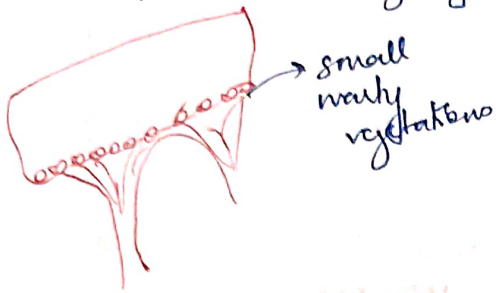 small
warty
vegetations